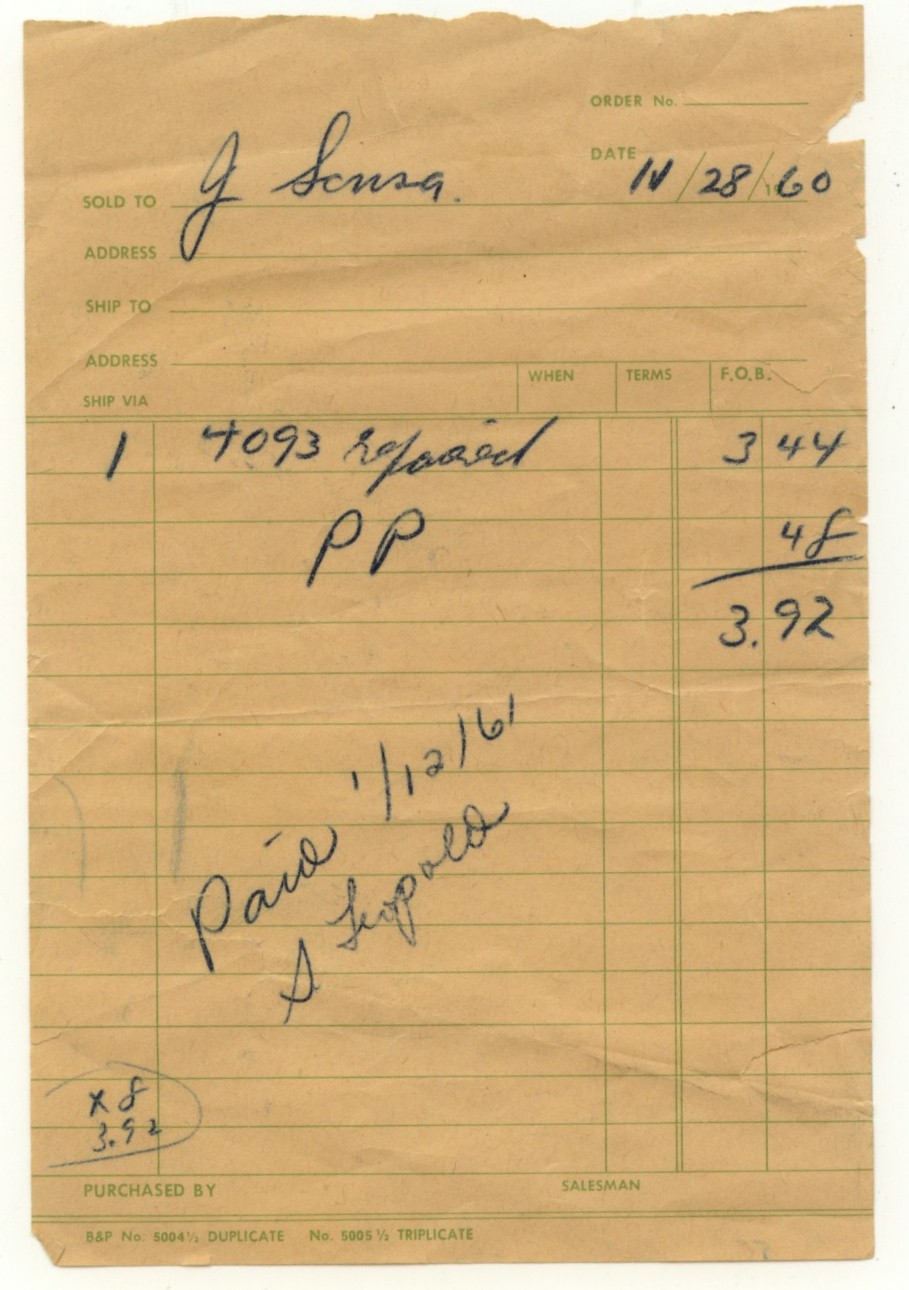 ORDER No.
DATE 11/28/1960
SOLD TO J Sousa.
ADDRESS
SHIP TO
ADDRESS
WHEN TERMS F.O.B.
SHIP VIA
1 4093 repaired 3 44
PP 48
3.92
Paid 1/12/61
S Leopold
x 8
3.92
PURCHASED BY SALESMAN
B&P No. 5004½ DUPLICATE No. 5005½ TRIPLICATE